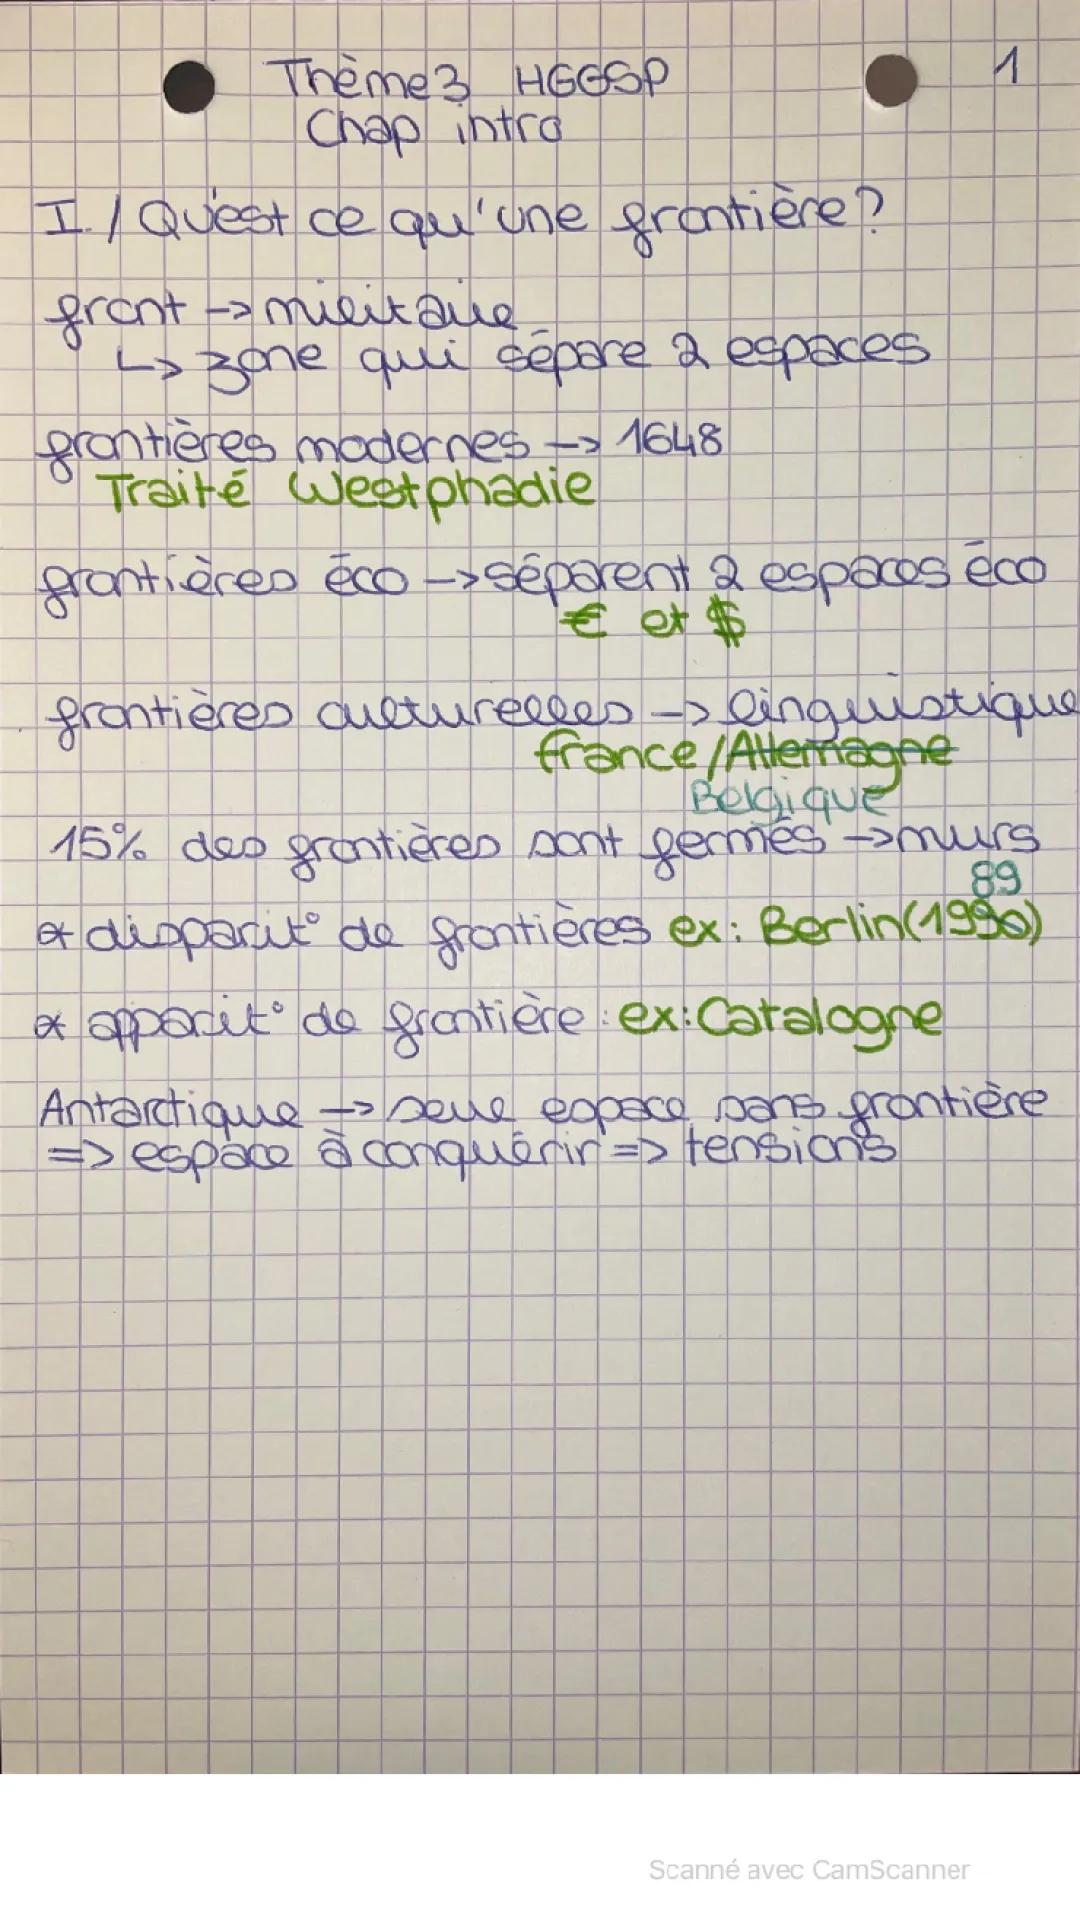 Thème 3 HGGSP
1
Chap intro
I. / Qu'est ce qu'une frontière ?
front -> militaire
↳ zone qui sépare 2 espaces
frontières modernes -> 1648
Traité Westphadie
frontières éco -> séparent 2 espaces éco
€ et $
frontières culturelles -> linguistique
france / Allemagne
Belgique
15% des frontières sont fermés -> murs
89
* disparit° de frontières ex : Berlin (1990)
* apparit° de frontière : ex : Catalogne
Antarctique -> seul espace sans frontière
=> espace à conquérir => tensions
Scanné avec CamScanner